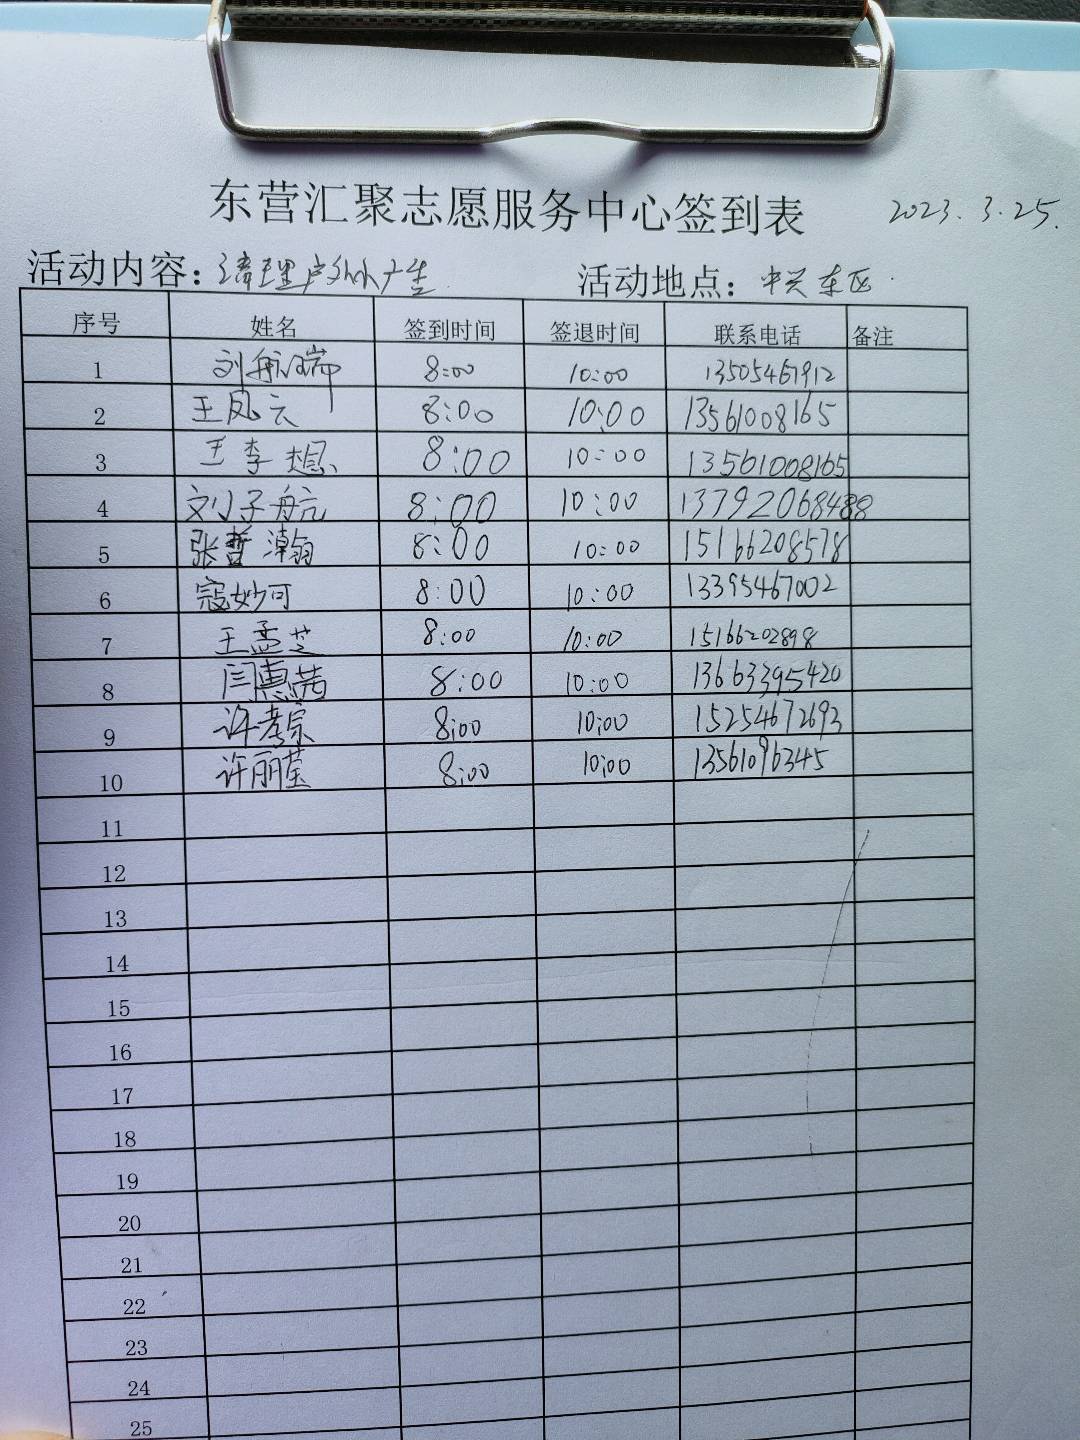 东营汇聚志愿服务中心签到表 2023.3.25.
活动内容：清理户外小广告 活动地点：中兴东区
序号 姓名 签到时间 签退时间 联系电话 备注
1 刘航瑞 8:00 10:00 13505461912
2 王凤云 8:00 10:00 13561008165
3 王李想 8:00 10:00 13561008165
4 刘子航 8:00 10:00 13792068488
5 张哲瀚 8:00 10:00 15166208578
6 寇妙可 8:00 10:00 13395467002
7 王孟芝 8:00 10:00 15166202898
8 闫惠茜 8:00 10:00 13663395420
9 许孝宗 8:00 10:00 15254672693
10 许丽莹 8:00 10:00 13561096345
11
12
13
14
15
16
17
18
19
20
21
22
23
24
25